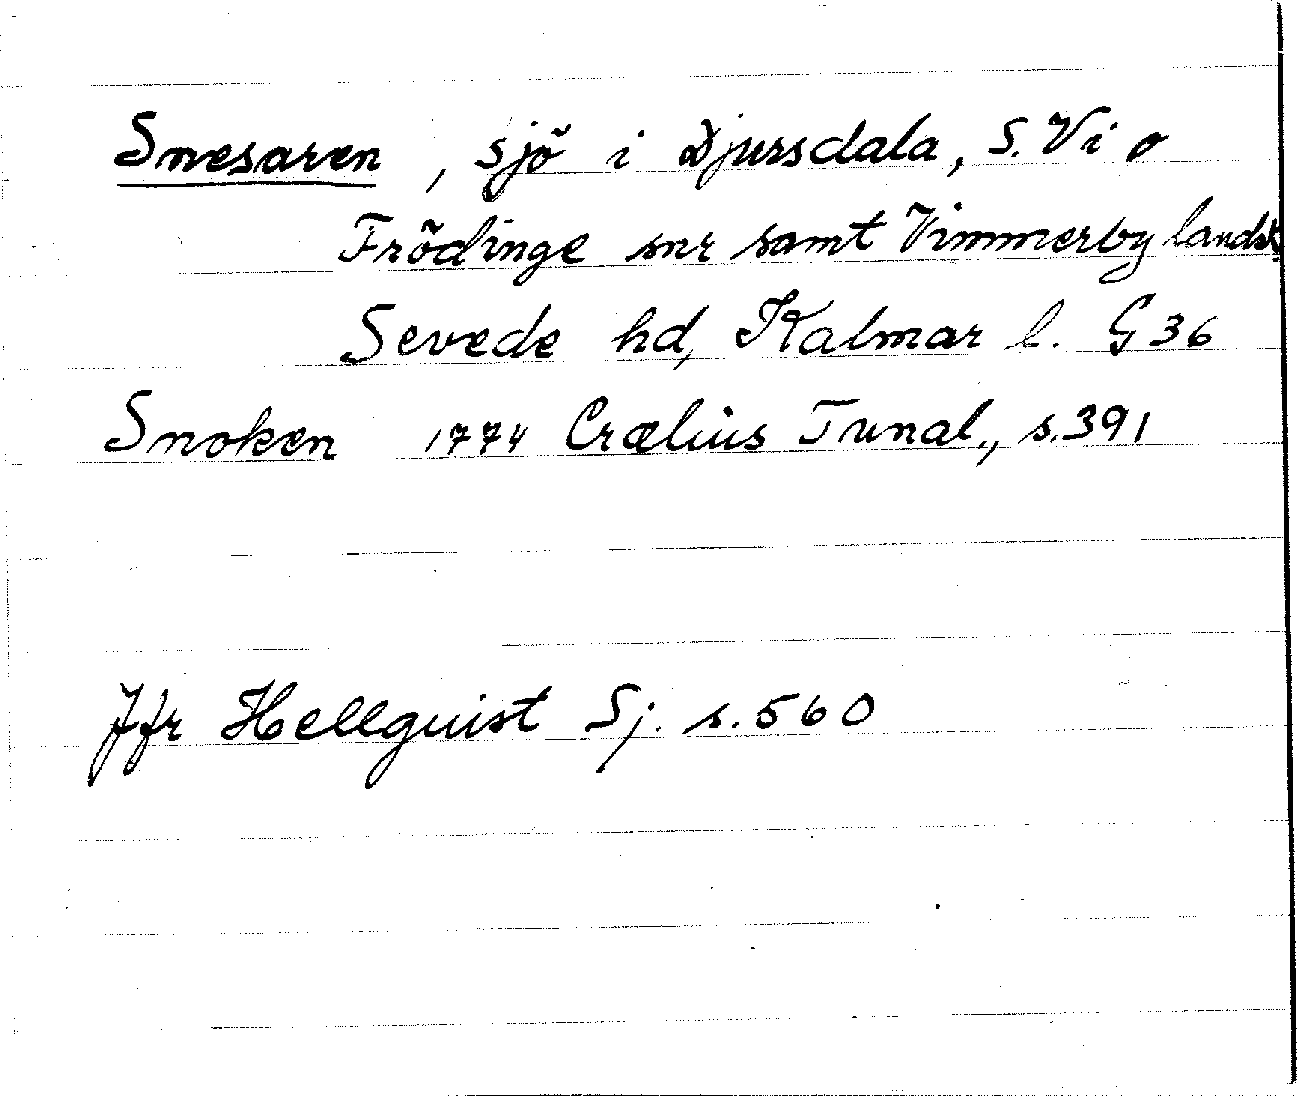 Snesaren, sjö i Djursdala, S. Vi o
Frödinge snr samt Vimmerby landsk.
Sevede hd, Kalmar l. G 36
Snoken 1774 Crælius Tunal., s. 391
Jfr Hellquist Sj. s. 560